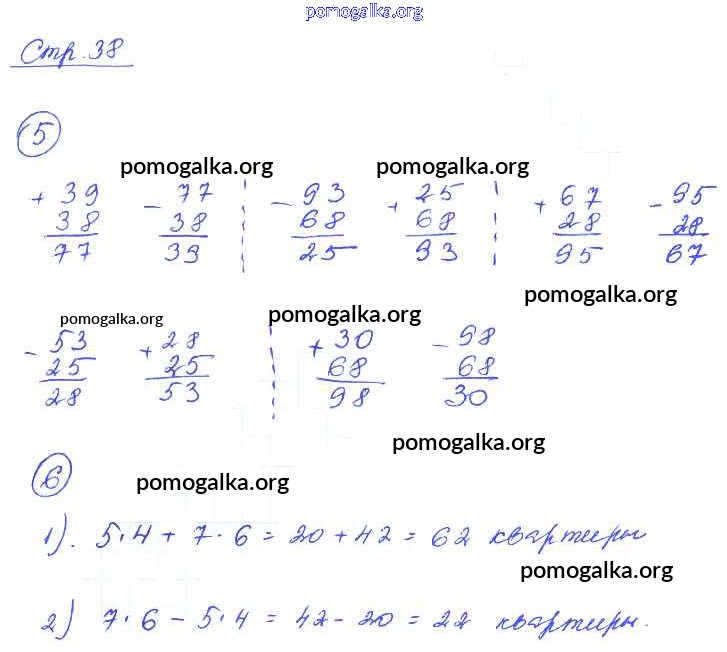 pomogalka.org
Стр. 38
5
pomogalka.org pomogalka.org
+ 39 - 77 - 93 + 25 + 67 - 95
38 38 68 68 28 28
77 39 25 93 95 67
pomogalka.org
pomogalka.org pomogalka.org
- 53 + 28 + 30 - 98
25 25 68 68
28 53 98 30
pomogalka.org
6 pomogalka.org
1). 5·4 + 7·6 = 20 + 42 = 62 квартиры
pomogalka.org
2) 7·6 - 5·4 = 42 - 20 = 22 квартиры.